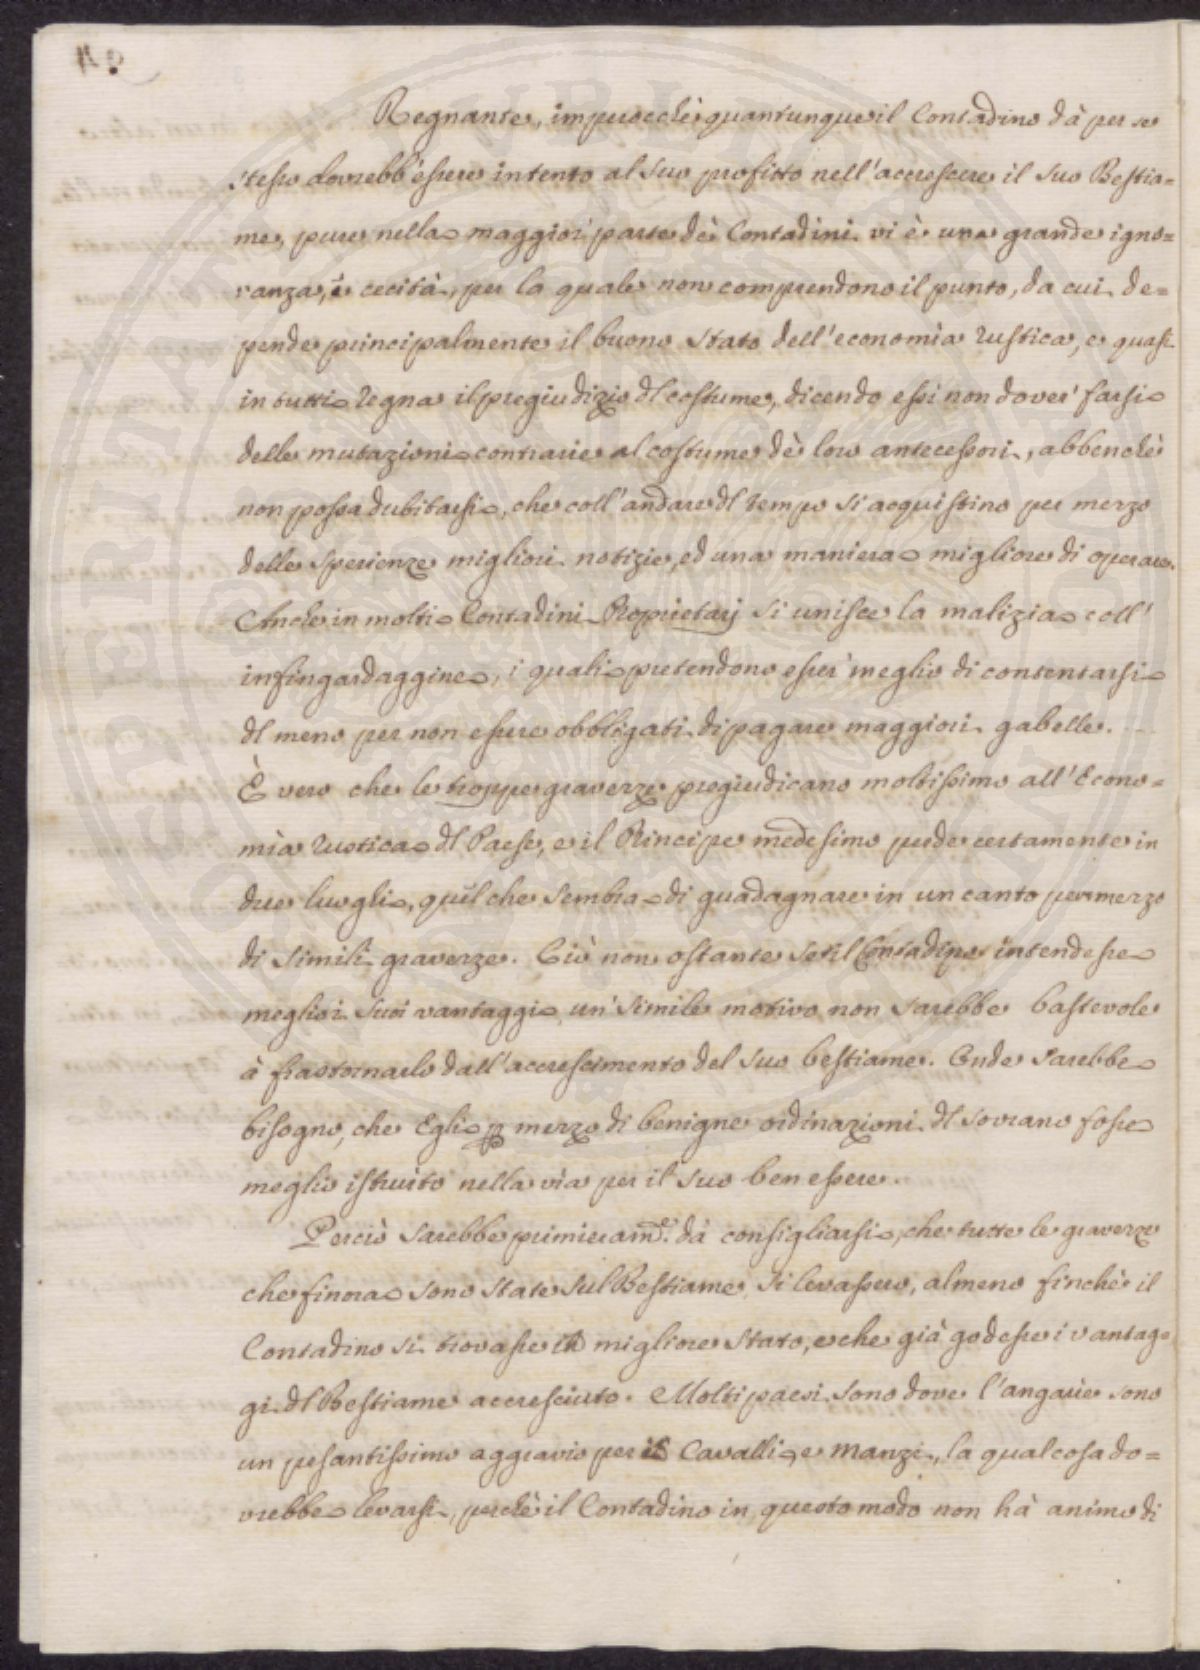 Regnante, imperocchè quantunque il Contadino dà per se
stesso dovrebb'essere intento al suo profitto nell'accrescere il suo Bestia=
me, pure nella maggior parte dè Contadini vi è una grande igno=
ranza, è cecità, per la quale non comprendono il punto, da cui de=
pende principalmente il buono stato dell'economìa rustica, e quasi
in tutti regna il pregiudizio dl costume, dicendo essi non dover' farsi
delle mutazioni contrarie al costume dè loro antecessori, abbenchè
non possa dubitarsi, che coll'andare dl tempo si acquistino per mezzo
delle sperienze migliori notizie, ed una maniera migliore di operare.
Anche in molti Contadini Proprietarj si unisce la malizia coll'
infingardaggine, i quali pretendono esser' meglio di contentarsi
dl meno per non essere obbligati di pagare maggiori gabelle.
È vero che le troppe graverze pregiudicano moltissimo all'Econo=
mìa rustica dl Paese, e il Principe medesimo perde certamente in
due luogli, quel che sembra di guadagnare in un canto per mezzo
di simili graverze. Ciò non ostante se il Contadino intendesse
meglio i suoi vantaggi un' simile motivo non sarebbe bastevole
à frastornarlo dall'accrescimento del suo bestiame. Onde sarebbe
bisogno, che Egli p mezzo di benigne ordinazioni dl sovrano fosse
meglio istruito nella via per il suo ben essere.
Perciò sarebbe primieram.te dà consigliarsi, che tutte le graverze
che finora sono state sul Bestiame si levassero, almeno finchè il
Contadino si trovasse in migliore stato, e che già godesse i vantag=
gi dl Bestiame accresciuto. Molti paesi sono dove l'angarie sono
un pesantissimo aggravio per i Cavalli, e manzi, la qual cosa do=
vrebbe levarsi, perchè il Contadino in questo modo non hà animo di